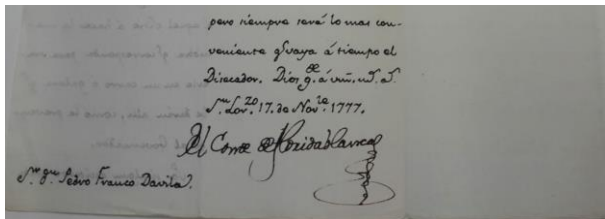 pero siempre será lo mas con-
veniente q.e vaya á tiempo el
Disecador. Dios g.de á vm. m.s a.s
S.n Lor.zo 17. de Nov.re 1777.
El Conde de Floridablanca
S.or D.n Pedro Franco Davila.